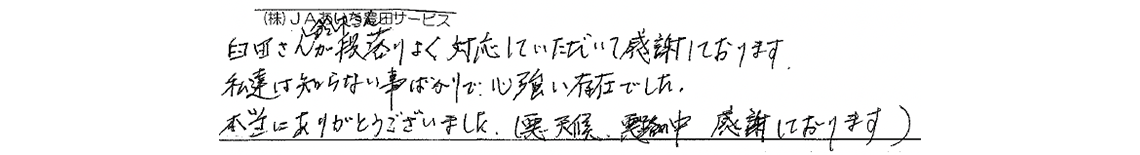 (株)JAあけなる窓田サービス
臼田さん 鈴木さんが段落りよく対応していただいて感謝しております。
私達は知らない事ばかりで、心強い存在でした。
本当にありがとうございました。(悪天候、悪路の中 感謝しております)